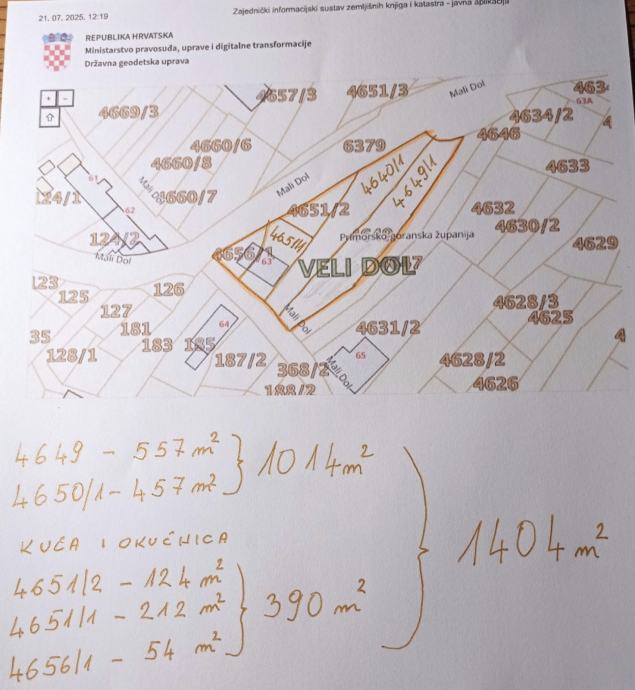 21. 07. 2025. 12:19
Zajednički informacijski sustav zemljišnih knjiga i katastra - javna aplikacija
REPUBLIKA HRVATSKA
Ministarstvo pravosuđa, uprave i digitalne transformacije
Državna geodetska uprava
4657/3
4651/3
Mali Dol
463
63A
4669/3
4634/2
4
4646
4660/6
6379
4660/8
4633
4640/1
4649/1
61
Mali Dol
124/1
4660/7
Mali Dol
62
4651/2
4632
4630/2
124/2
4651/1
Primorsko-goranska županija
4629
Mali Dol
4656/1
63
VELI DOL
7
123
125
126
127
Mali Dol
4628/3
4625
181
64
4631/2
35
183
185
4
128/1
187/2
65
4628/2
368/2
Mali Dol
4626
188/2
4649 - 557 m²
1014 m²
4650/1 - 457 m²
KUĆA I OKUĆNICA
1404 m²
4651/2 - 124 m²
4651/1 - 212 m²
390 m²
4656/1 - 54 m²